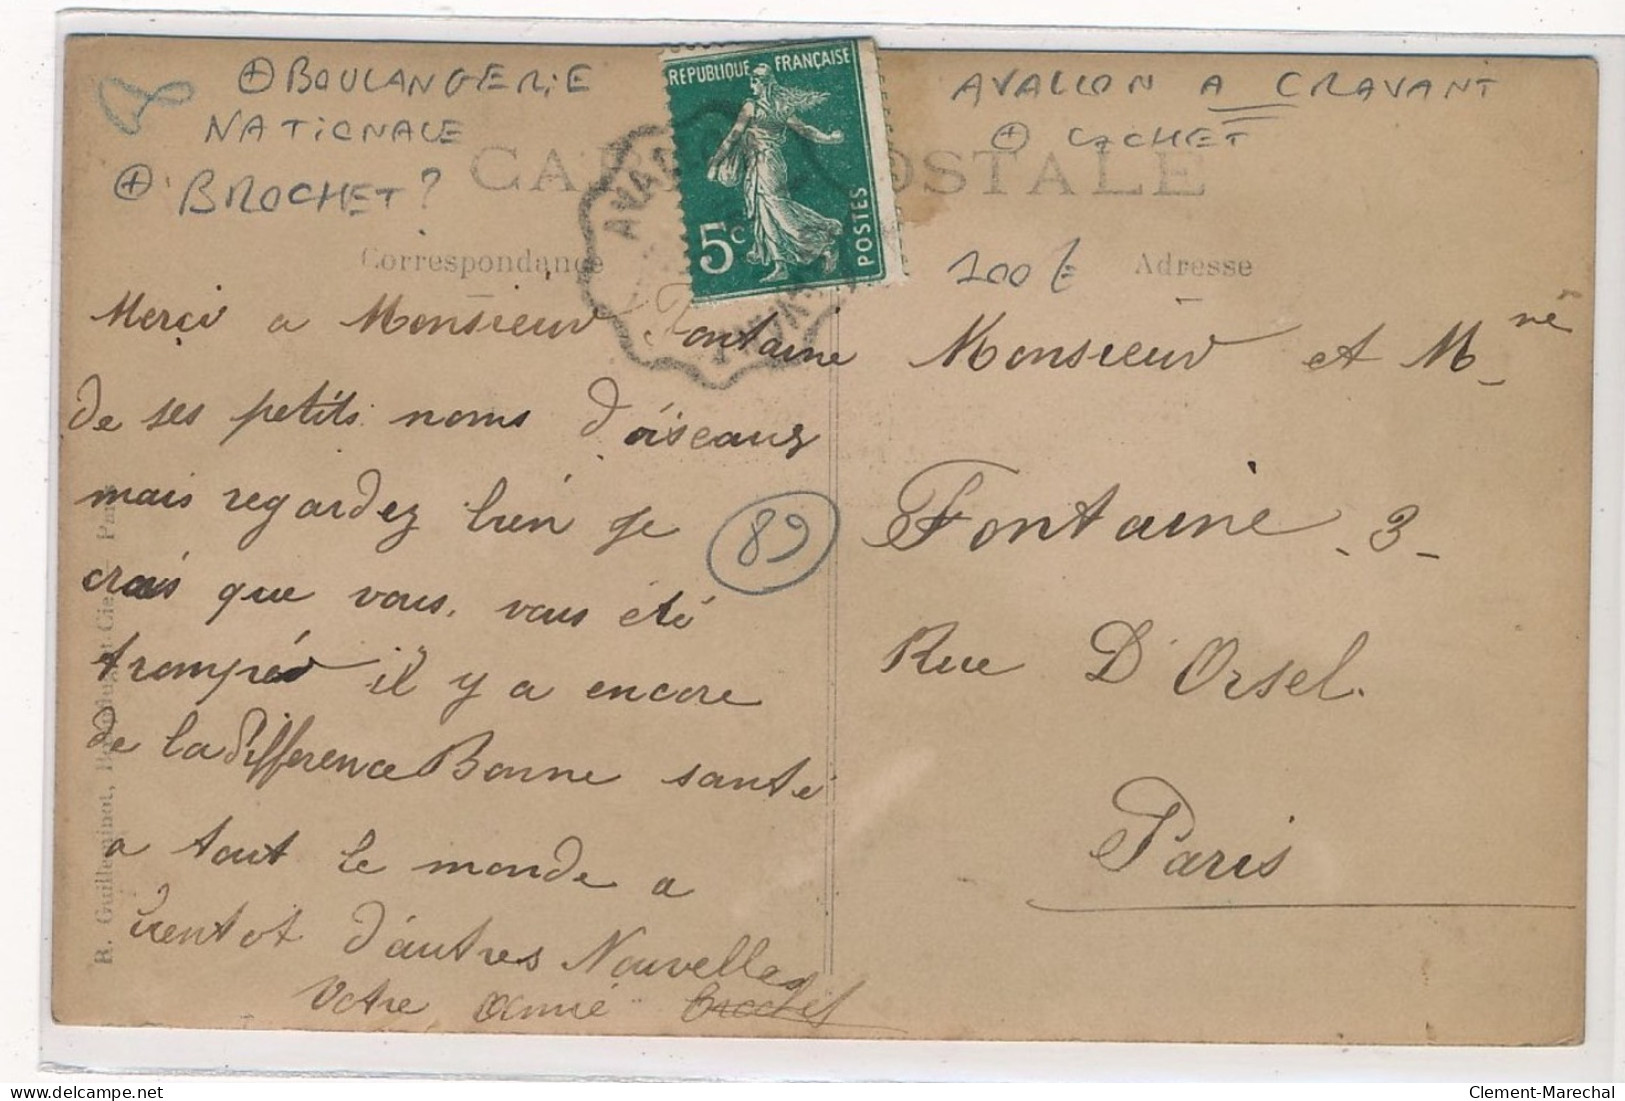 ⊕ BOULANGERIE
NATIONALE
⊕ BROCHET ?
AVALLON A CRAVANT
⊕ CACHET
100 €
REPUBLIQUE FRANÇAISE
5c
POSTES
CARTE POSTALE
Correspondance
Adresse
Merçi a Monsieur Fontaine
de ses petits noms d'oiseaux
mais regardez bien je
crois que vous, vous été
trompés il y a encore
de la différence Bonne santé
a tout le monde a
bientot d'autres Nouvelles
Votre amie
89
Monsieur et Mme
Fontaine - 3 -
Rue D'Orsel.
Paris
R. Guilleminot, et Cie - Paris
delcampe.net
Clement-Marechal